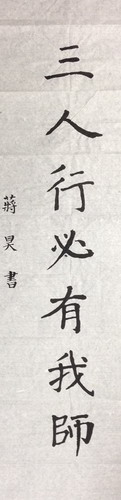 三人行必有我師
蔣昊書